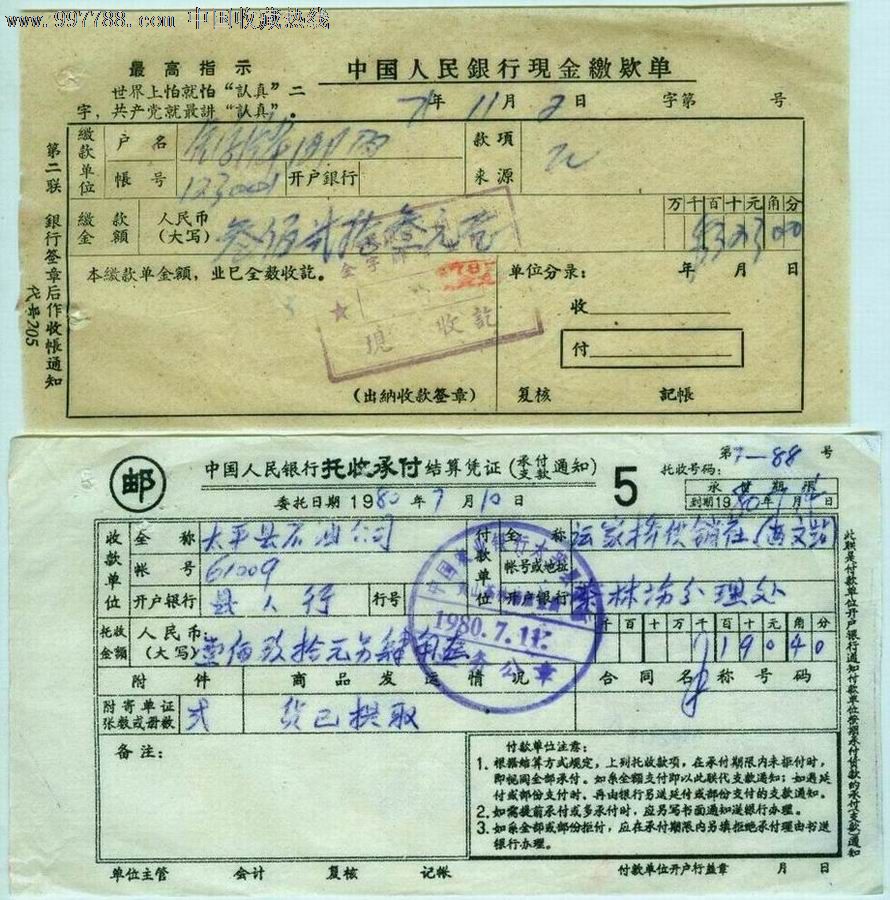 www.997788.com 中国收藏热线
最高指示
世界上怕就怕“認真”二
字，共产党就最講“認真”.
中国人民銀行現金繳欵单
71年 11月 2日 字第 号
繳款单位
户名
款項来源
帳号 123001 开户銀行
繳款金額
人民币(大写) 叁佰贰拾叁元
万千百十元角分
32300
本繳款单金額，並已全数收訖。
单位分录： 年 月 日
收
付
現 收訖
(出納收款签章) 复核 記帳
第二联 銀行签章后作收帳通知
代号205
邮
中国人民银行托收承付结算凭证(承付支款通知)
5
第 号
托收号码：
88
委托日期 1980年7月10日
承付期限
到期1980年7月 日
收款单位
全称 太平县石油公司
帐号 61009
开户银行 县人行 行号
付款单位
全称
帐号或地址
开户银行
1980.7.11
托收金额
人民币(大写) 壹佰玖拾元另肆角
千百十万千百十元角分
19040
附件 商品发运情况 合同名称号码
附寄单证张数或册数 贰 货已提取
备注：
付款单位注意：
1. 根据结算方式规定，上列托收款项，在承付期限内未拒付时，
即视同全部承付。如系全额支付即以此联代支款通知；如遇延
付或部份支付时，再由银行另送延付或部份支付的支款通知。
2. 如需提前承付或多承付时，应另写书面通知送银行办理。
3. 如系全部或部份拒付，应在承付期限内另填拒绝承付理由书送
银行办理。
单位主管 会计 复核 记帐 付款单位开户行盖章 月 日
此联是付款单位开户银行通知付款单位按期承付货款的承付(支款)通知